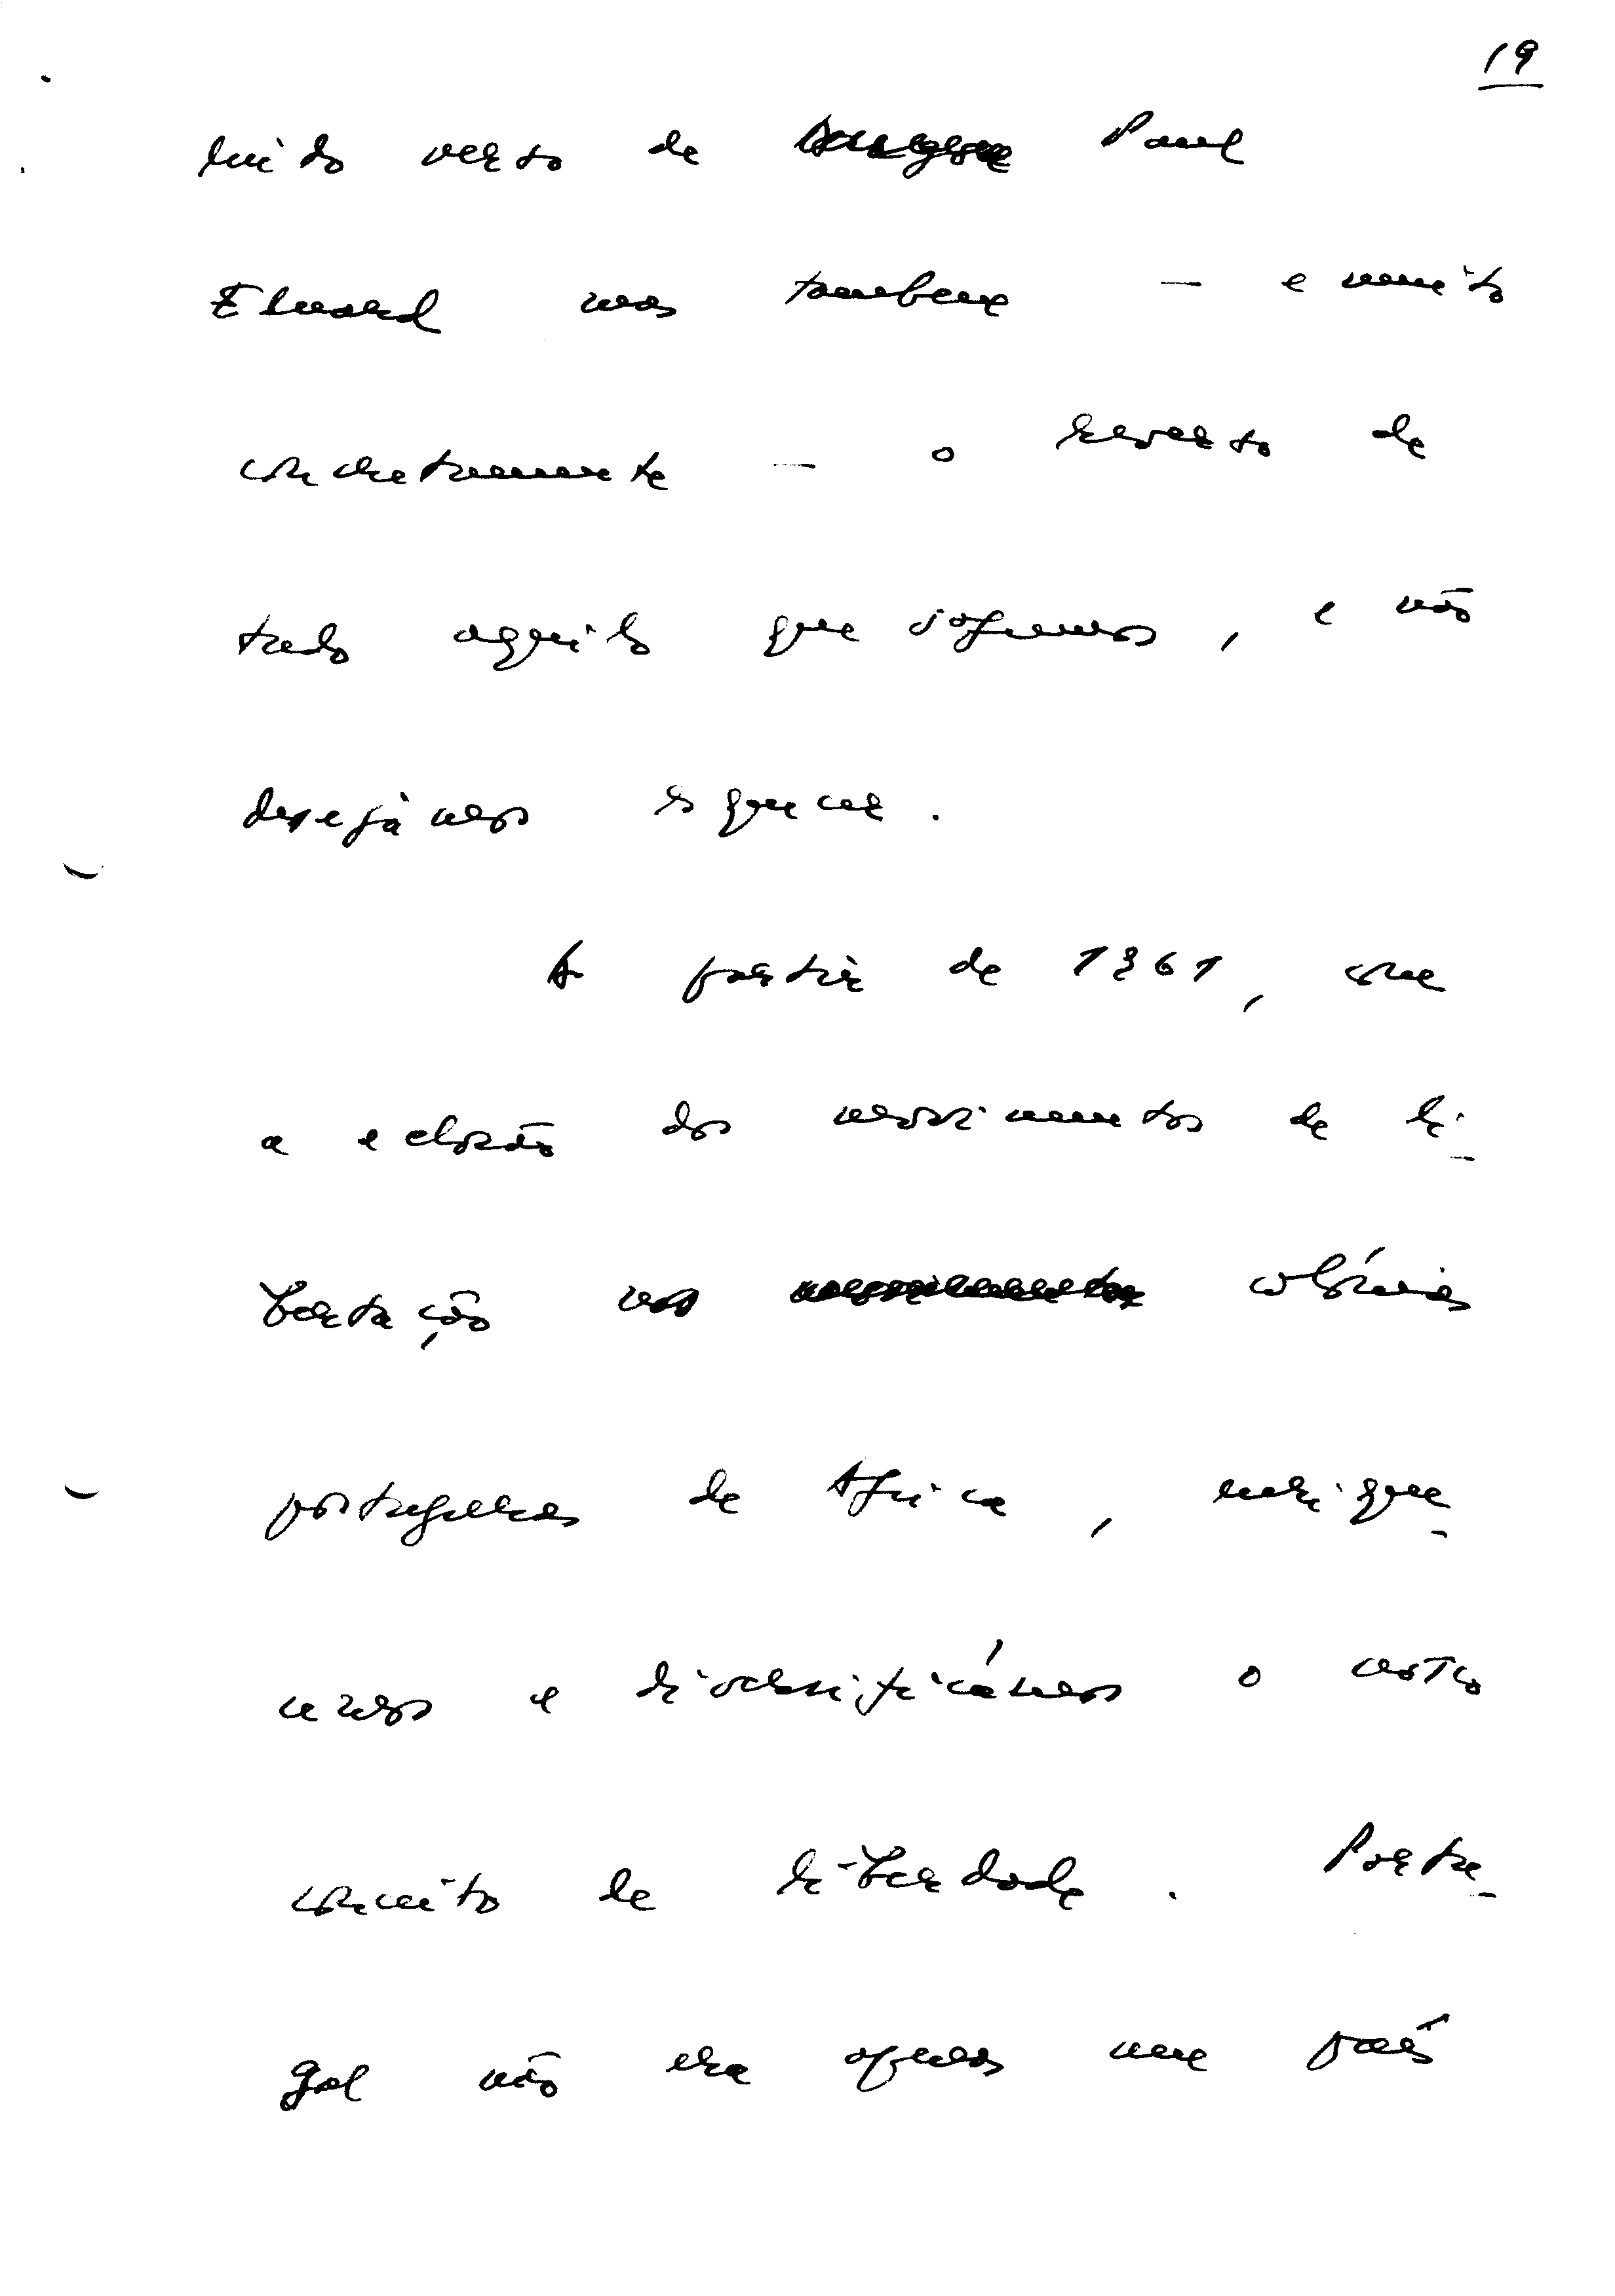 19
lindo verso de Paul
Eluard mas tambem — e muito
concretamente — o reverso de
tudo aquilo que sofremos, e não
desejámos esquecer.
A partir de 1961, com
a eclosão dos movimentos de li-
bertação nas colónias
portuguesas de Africa, enrique-
cemos e diversificámos o nosso
conceito de liberdade. Portu-
gal não era apenas um país